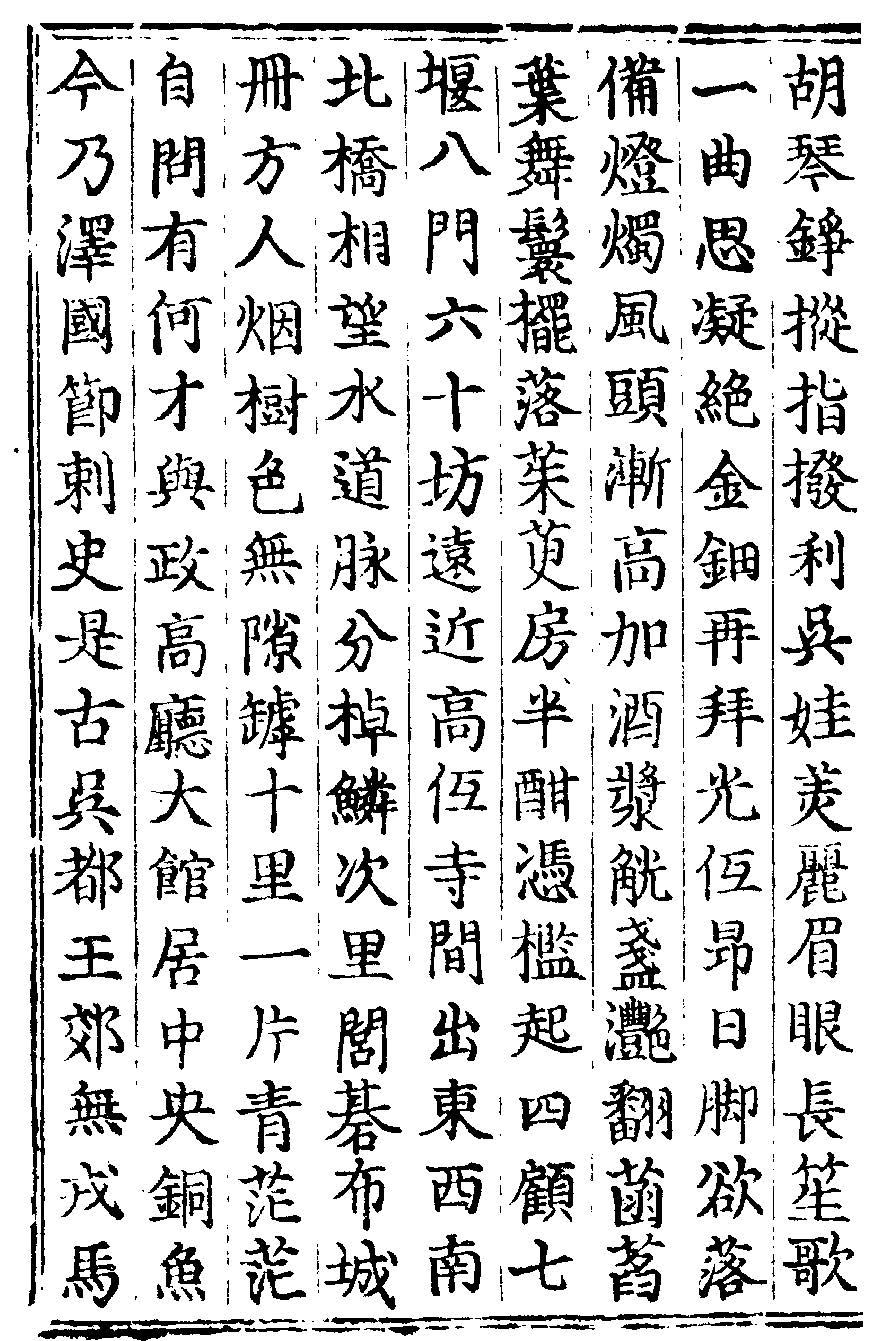 胡琴錚摐指撥利呉娃美麗眉眼長笙歌
一曲思凝絶金鈿再拜光仾昂日脚欲落
備燈燭風頭漸高加酒漿觥盞灧翻菡萏
葉舞鬟擺落茱萸房半酣凭檻起四顧七
堰八門六十坊遠近高仾寺間出東西南
北橋相望水道脉分棹鱗次里閭碁布城
冊方人烟樹色無隙罅十里一片青茫茫
自問有何才與政高廳大館居中央銅魚
今乃澤國節刺史是古呉都王郊無戎馬